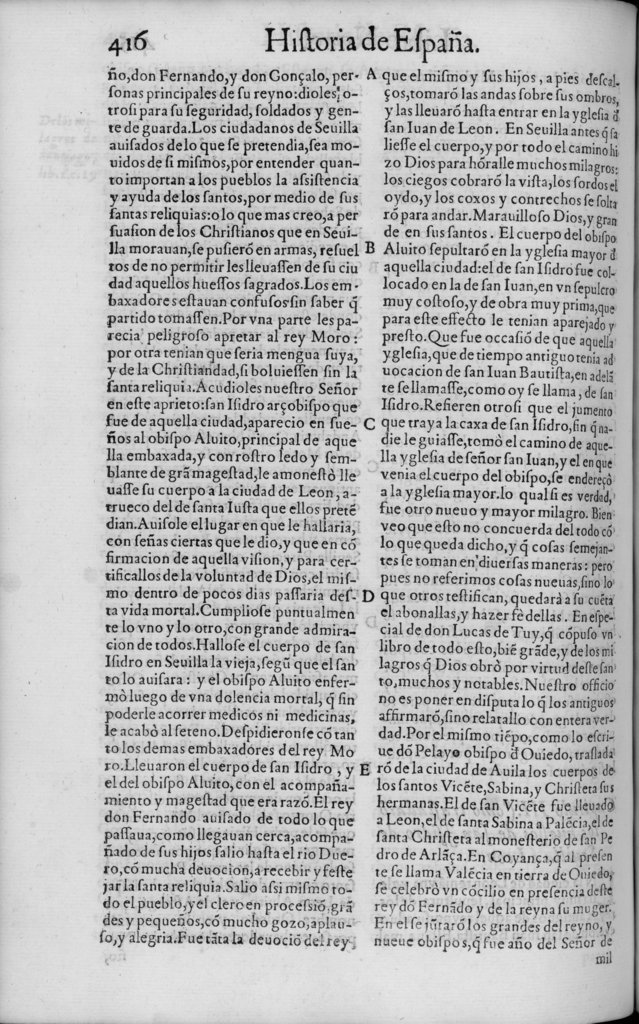 416 Historia de España.
ño,don Fernando,y don Gonçalo, per-
sonas principales de su reyno:dioles, o-
trosi para su seguridad, soldados y gen-
te de guarda.Los ciudadanos de Seuilla
auisados de lo que se pretendia,sea mo-
uidos de si mismos,por entender quan-
to importan a los pueblos la assistencia
y ayuda de los santos,por medio de sus
santas reliquias:o lo que mas creo,a per
suasion de los Christianos que en Seui-
lla morauan,se pusierõ en armas, resuel
tos de no permitir les lleuassen de su ciu
dad aquellos huessos sagrados.Los em-
baxadores estauan confusos sin saber q̃
partido tomassen.Por vna parte les pa-
recia peligroso apretar al rey Moro :
por otra tenian que seria mengua suya,
y de la Christiandad,si boluiessen sin la
santa reliquia.Acudioles nuestro Señor
en este aprieto:san Isidro arçobispo que
fue de aquella ciudad,aparecio en sue-
ños al obispo Aluito,principal de aque
lla embaxada,y con rostro ledo y sem-
blante de grã magestad,le amonestò lle
uasse su cuerpo a la ciudad de Leon, a-
trueco del de santa Iusta que ellos pretẽ
dian.Auisole el lugar en que le hallaria,
con señas ciertas que le dio,y que en cõ
firmacion de aquella vision, y para cer-
tificallos de la voluntad de Dios,el mis-
mo dentro de pocos dias passaria des-
ta vida mortal.Cumpliose puntualmen
te lo vno y lo otro,con grande admira-
cion de todos.Hallose el cuerpo de san
Isidro en Seuilla la vieja,segũ que el san
to lo auisara : y el obispo Aluito enfer-
mò luego de vna dolencia mortal, q̃ sin
poderle acorrer medicos ni medicinas,
le acabò al seteno.Despidieronse cõ tan
to los demas embaxadores del rey Mo
ro.Lleuaron el cuerpo de san Isidro , y
el del obispo Aluito,con el acompaña-
miento y magestad que era razõ.El rey
don Fernando auisado de todo lo que
passaua,como llegauan cerca,acompa-
ñado de sus hijos salio hasta el rio Due-
ro,cõ mucha deuocion,a recebir y feste
jar la santa reliquia.Salio assi mismo to-
do el pueblo,y el clero en processiõ,grã
des y pequeños,cõ mucho gozo,aplau-
so,y alegria.Fue tãta la deuociõ del rey
A que el mismo y sus hijos , a pies descal-
ços,tomarõ las andas sobre sus ombros,
y las lleuarõ hasta entrar en la yglesia đ
san Iuan de Leon. En Seuilla antes q̃ sa
liesse el cuerpo,y por todo el camino hi
zo Dios para hõralle muchos milagros:
los ciegos cobrarõ la vista,los sordos el
oydo,y los coxos y contrechos se solta
rõ para andar.Marauilloso Dios,y gran
de en sus santos. El cuerpo del obispo
B Aluito sepultarõ en la yglesia mayor đ
aquella ciudad:el de san Isidro fue col-
locado en la de san Iuan,en vn sepulcro
muy costoso,y de obra muy prima,que
para este effecto le tenian aparejado y
presto.Que fue occasiõ de que aquella
yglesia,que de tiempo antiguo tenia ad
uocacion de san Iuan Bautista,en adelã
te se llamasse,como oy se llama, de san
Isidro.Refieren otrosi que el jumento
C que traya la caxa de san Isidro,sin q̃ na-
die le guiasse,tomò el camino de aque-
lla yglesia de señor san Iuan,y el en que
venia el cuerpo del obispo,se endereçò
a la yglesia mayor.lo qual si es verdad,
fue otro nueuo y mayor milagro. Bien
veo que esto no concuerda del todo cõ
lo que queda dicho,y q̃ cosas semejan-
tes se toman en diuersas maneras : pero
pues no referimos cosas nueuas,sino lo
D que otros testifican, quedarà a su cuẽta
el abonallas,y hazer fe dellas. En espe-
cial de don Lucas de Tuy,q̃ cõpuso vn
libro de todo esto,biẽ grãde,y de los mi
lagros q̃ Dios obrò por virtud deste san
to,muchos y notables.Nuestro officio
no es poner en disputa lo q̃ los antiguos
affirmarõ,sino relatallo con entera ver-
dad.Por el mismo tiẽpo,como lo escri-
ue dõ Pelayo obispo đ Ouiedo, traslada
E rõ de la ciudad de Auila los cuerpos de
los santos Vicẽte,Sabina,y Christeta sus
hermanas.El de san Vicẽte fue lleuado
a Leon,el de santa Sabina a Palẽcia,el de
santa Christeta al monesterio de san Pe
dro de Arlãça.En Coyança,q̃ al presen
te se llama Valẽcia en tierra de Ouiedo,
se celebrò vn cõcilio en presencia deste
rey dõ Fernãdo y de la reyna su muger.
En el se jũtarõ los grandes del reyno, y
nueue obispos,q̃ fue año del Señor de
mil